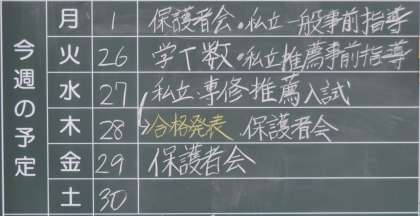 今週の予定
月 1 保護者会・私立一般事前指導
火 26 学下数・私立推薦事前指導
水 27 私立・専修推薦入試
木 28 →合格発表 保護者会
金 29 保護者会
土 30